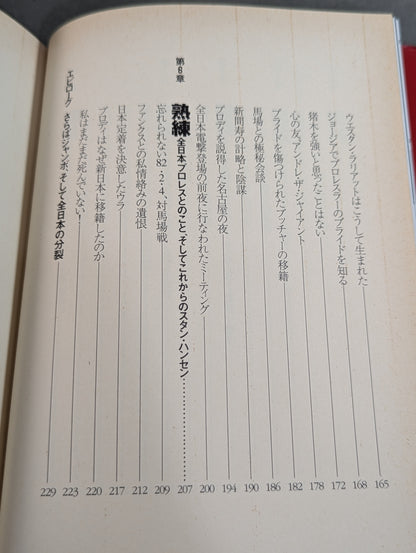 ウエスタン・ラリアットはこうして生まれた 165
ジョージアでプロレスラーのプライドを知る 168
猪木を強いと思ったことはない 172
心の友、アンドレ・ザ・ジャイアント 178
プライドを傷つけられたブッチャーの移籍 182
馬場との極秘会談 186
新間寿の計略と陰謀 190
ブロディを説得した名古屋の夜 194
全日本電撃登場の前夜に行なわれたミーティング 200
第6章
熟練 全日本プロレスとのこと、そしてこれからのスタン・ハンセン 207
忘れられない82・2・4、対馬場戦 209
ファンクスとの私情絡みの遺恨 212
日本定着を決意したウラ 217
ブロディはなぜ新日本に移籍したのか 220
私はまだまだ死んでいない! 223
エピローグ さらばジャンボ、そして全日本の分裂 229